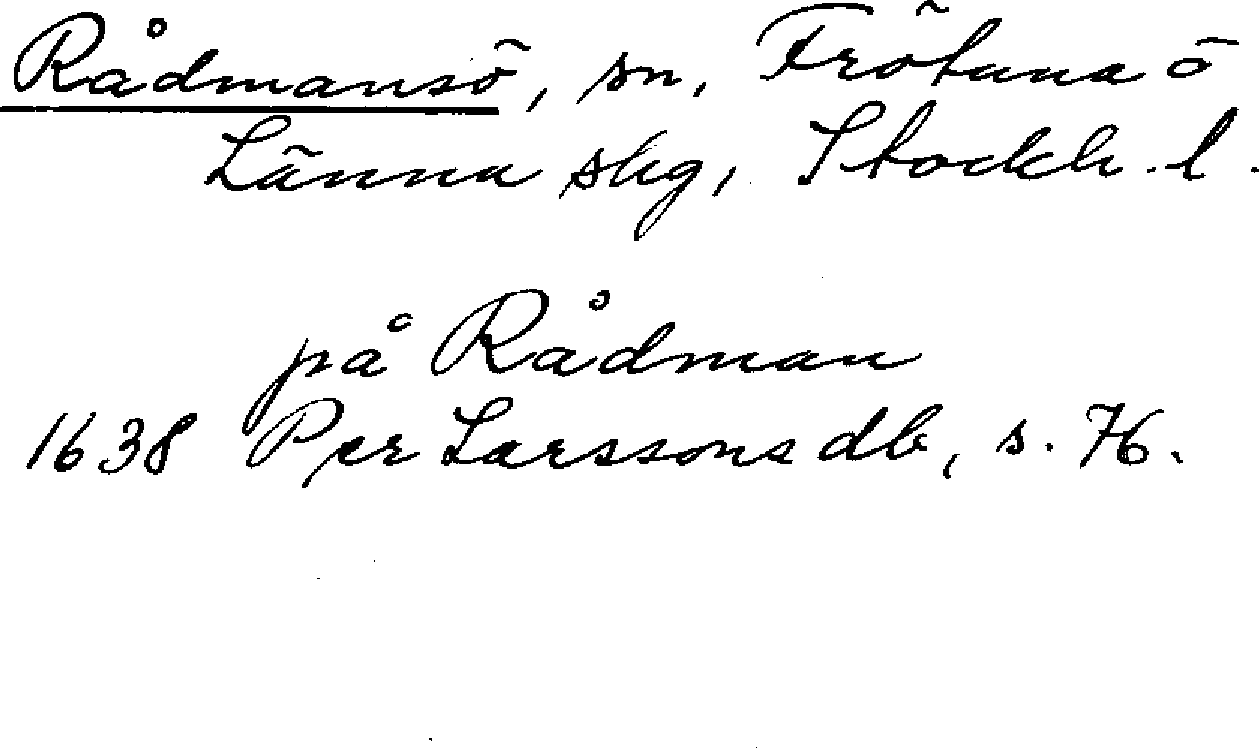 Rådmansö, sn, Frötuna o
Länna skg, Stockh. l.
på Rådman
1638 Per Larssons db, s. 76.